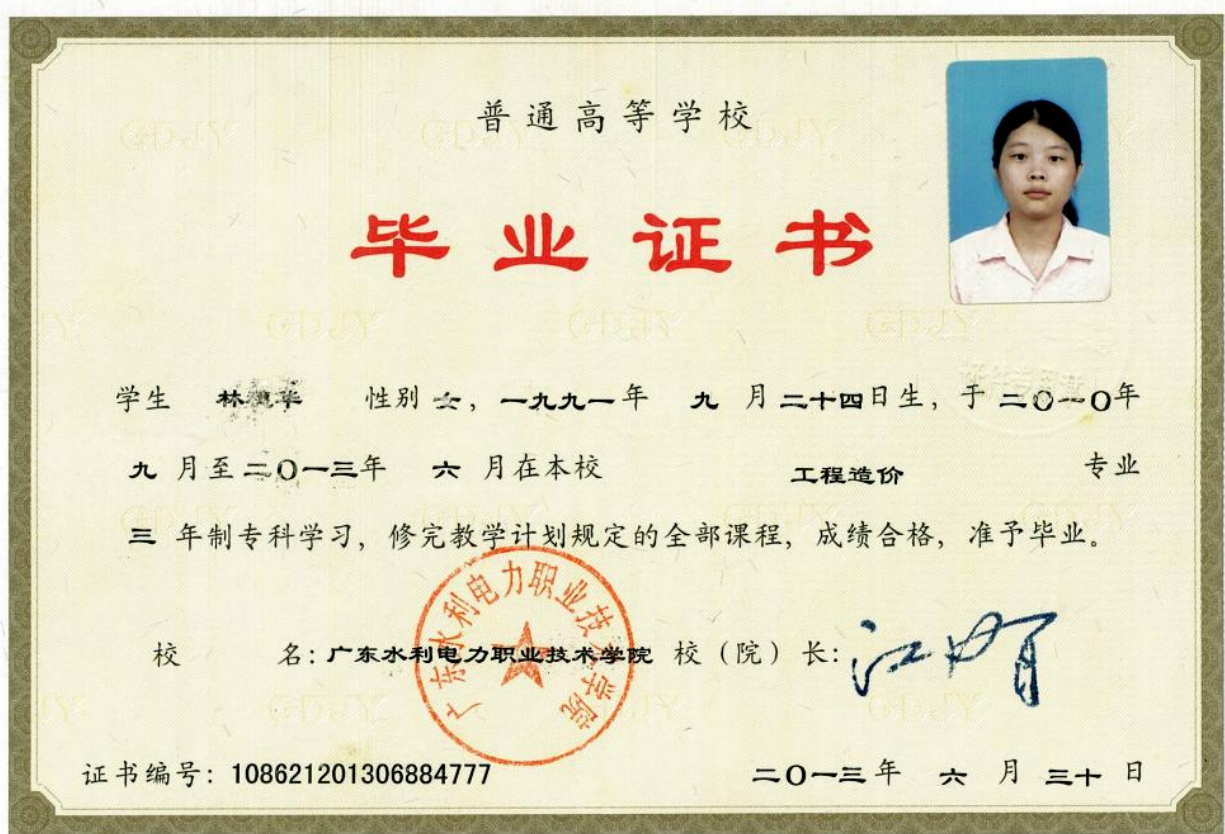 普通高等学校
毕业证书
学生 林 华 性别 女，一九九一年 九 月二十四日生，于二〇一〇年
九 月至二〇一三年 六 月在本校 工程造价 专业
三 年制专科学习，修完教学计划规定的全部课程，成绩合格，准予毕业。
广东水利电力职业技术学院
校 名：广东水利电力职业技术学院 校（院）长：
证书编号：108621201306884777 二〇一三年 六 月 三十 日
GDJY